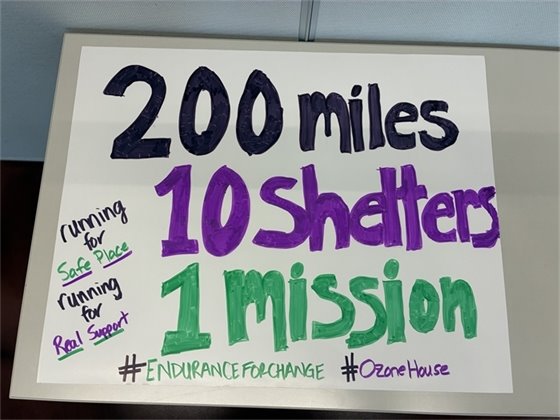 200 miles
10 Shelters
1 mission
running
for
Safe Place
running
for
Real Support
#ENDURANCEFORCHANGE #OzoneHouse